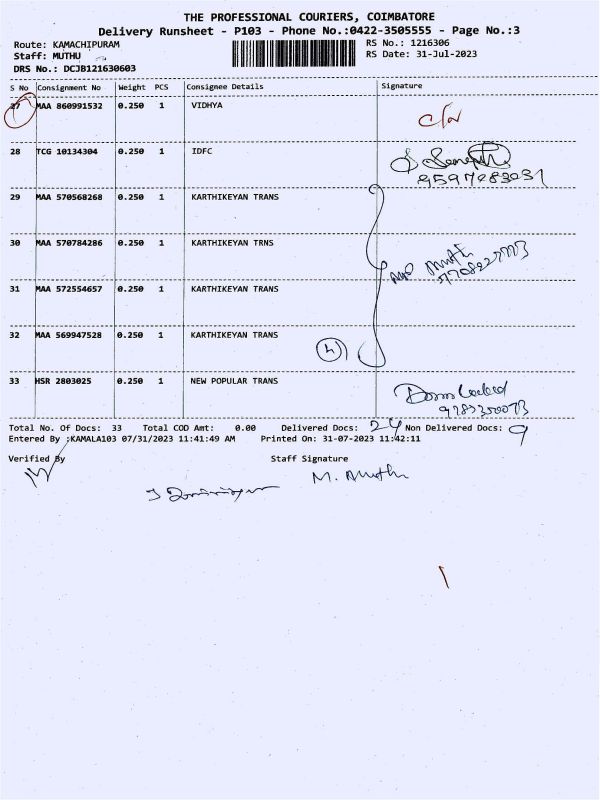 THE PROFESSIONAL COURIERS, COIMBATORE
Delivery Runsheet - P103 - Phone No.:0422-3505555 - Page No.:3
Route: KAMACHIPURAM RS No.: 1216306
Staff: MUTHU RS Date: 31-Jul-2023
DRS No.: DCJB121630603
S No Consignment No Weight PCS Consignee Details Signature
27 MAA 860991532 0.250 1 VIDHYA
28 TCG 10134304 0.250 1 IDFC
29 MAA 570568268 0.250 1 KARTHIKEYAN TRANS
30 MAA 570784286 0.250 1 KARTHIKEYAN TRNS
31 MAA 572554657 0.250 1 KARTHIKEYAN TRANS
32 MAA 569947528 0.250 1 KARTHIKEYAN TRANS
33 HSR 2803025 0.250 1 NEW POPULAR TRANS
Total No. Of Docs: 33 Total COD Amt: 0.00 Delivered Docs: 24 Non Delivered Docs: 9
Entered By :KAMALA103 07/31/2023 11:41:49 AM Printed On: 31-07-2023 11:42:11
Verified By Staff Signature
M. Muthu